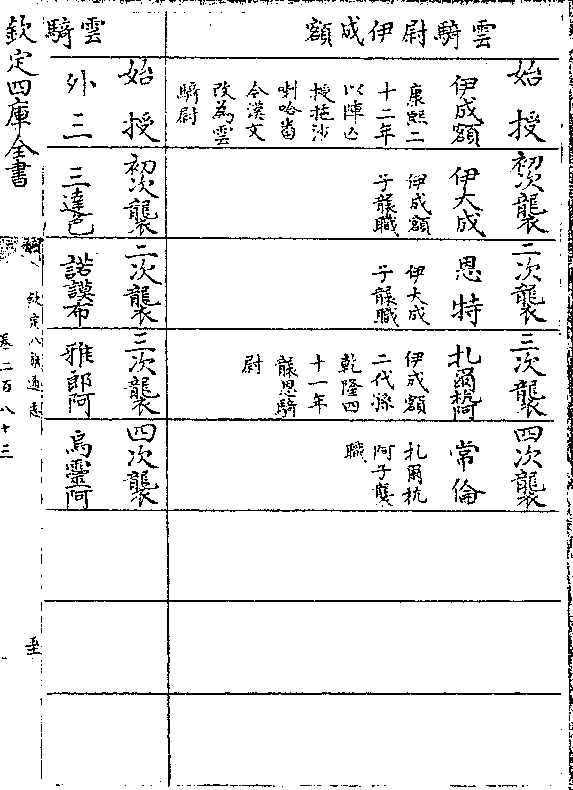 雲騎尉伊成額
始授
伊成額
康熙二
十二年
以陣亡
授拖沙
喇哈畨
今漢文
改為雲
騎尉
初次襲
伊大成
伊成額
子襲職
二次襲
恩特
伊大成
子襲職
三次襲
扎爾杭阿
伊成額
二代孫
乾隆四
十一年
襲恩騎
尉
四次襲
常倫
扎爾杭
阿子襲
職
雲騎
始授
外三
初次襲
三達色
二次襲
諾謨布
三次襲
雅郎阿
四次襲
烏靈阿
欽定四庫全書
欽定八旗通志
卷二百八十三